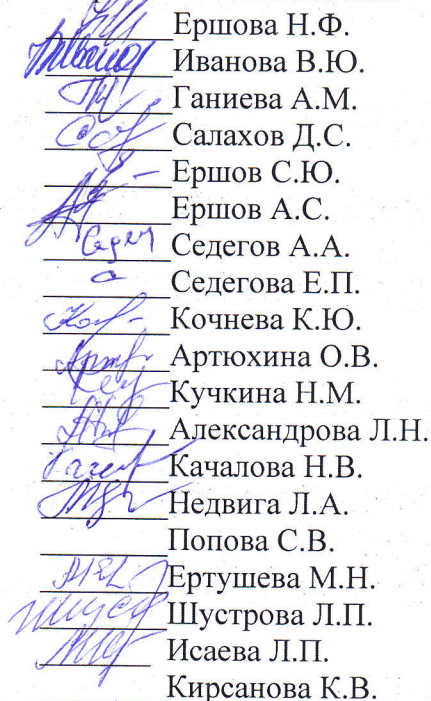 Ершова Н.Ф.
Иванова В.Ю.
Ганиева А.М.
Салахов Д.С.
Ершов С.Ю.
Ершов А.С.
Седегов А.А.
Седегова Е.П.
Кочнева К.Ю.
Артюхина О.В.
Кучкина Н.М.
Александрова Л.Н.
Качалова Н.В.
Недвига Л.А.
Попова С.В.
Ертушева М.Н.
Шустрова Л.П.
Исаева Л.П.
Кирсанова К.В.